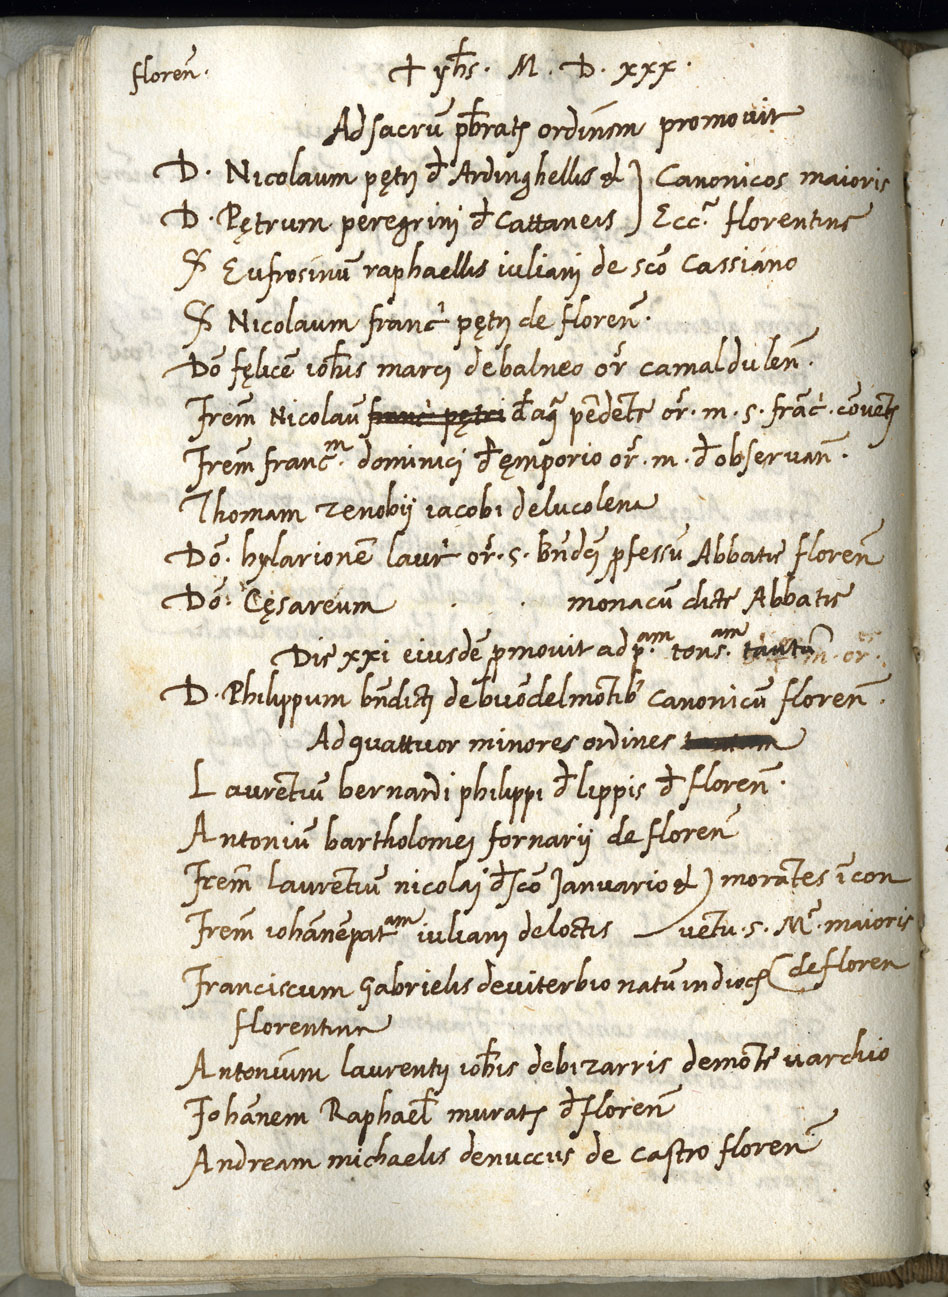 floren̄.
✝ yh̄s. M. D. xxx.
Ad sacrū pb̄ratꝰ ordinem promovit
D. Nicolaum pętrj đ Ardinghellis &
D. Pętrum peregrinj đ Cattaneis
} Canonicos maioris
Ecc.ᵃ florentine
Eufrosinū raphaellis iulianj de sc̄o Cassiano
Nicolaum franc.ⁱ pętrj de floren̄.
Dō fęlicē ioh̄is marcj de balneo or̄ camaldulen̄.
Frem̄ Nicolaū franc.ⁱ pętri đ aq̄ pēdente or̄. m. s. frāc.ⁱ. cōvent
Frem̄ franc.ᵐ dominicj đ ęmporio or̄. m. đ observan̄.
Thomam zenobij iacobi de lucolena
Dō. hylarionē laur.ⁱ or̄. s. bn̄dc̄j ꝓfessū Abbatie floren̄
Dō. Cęsareum . . monacū dicte Abbatie
Die xxi eiusdē ꝓmovit ad p.ᵃᵐ tons.ᵃᵐ tantū m. or.ᵉˢ
D. Philippum bn̄dictj de buōdelmōtibꝰ canonicū floren̄.
Ad quattuor minores ordines
Laurentiū bernardi philippi đ lippis đ floren̄.
Antoniū bartholomej fornarij de floren̄
Frem̄ laurentiū nicolaj đ sc̄o Januario & ) morātes ī con
Frem̄ iohānēpat.ᵃᵐ iulianj de loctis — ventu. s. M.ᵉ maioris
Franciscum Gabrielis de viterbio natū in dioc̄ (de floren
florentina
Antonium laurentij ioh̄is de bizarris de mōte varchio
Johānem Raphael̄ muratꝰ đ floren̄
Andream michaelis de nuccus de castro floren̄